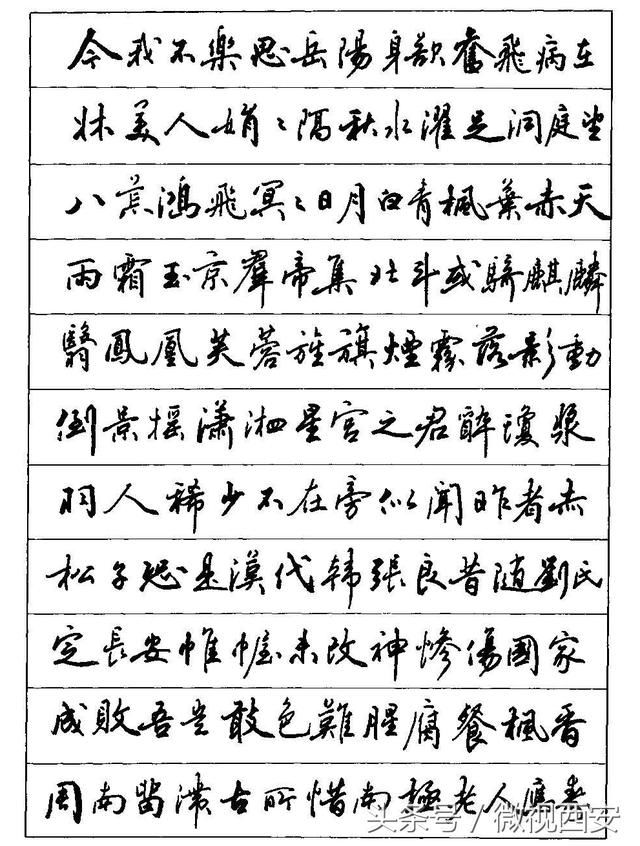 今我不樂思岳陽身欲奮飛病在
牀美人娟〻隔秋水濯足洞庭望
八荒鴻飛冥〻日月白青楓葉赤天
雨霜玉京羣帝集北斗或騎麒麟
翳鳳凰芙蓉旌旗煙霧落影動
倒景搖瀟湘星宮之君醉瓊漿
羽人稀少不在旁似聞昨者赤
松子恐是漢代韓張良昔隨劉氏
定長安帷幄未改神慘傷國家
成敗吾豈敢色難腥腐餐楓香
周南留滯古所惜南極老人應壽
头条号/微视西安